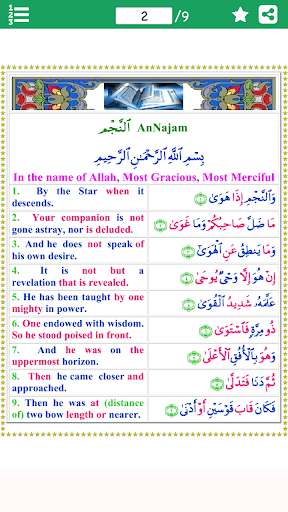 1 2 3
2 /9
ٱلنَّجْم AnNajam
بِسْمِ ٱللَّهِ ٱلرَّحْمَـٰنِ ٱلرَّحِيمِ
In the name of Allah, Most Gracious, Most Merciful
1. By the Star when it descends.
وَٱلنَّجْمِ إِذَا هَوَىٰ ﴿١﴾
2. Your companion is not gone astray, nor is deluded.
مَا ضَلَّ صَاحِبُكُمْ وَمَا غَوَىٰ ﴿٢﴾
3. And he does not speak of his own desire.
وَمَا يَنطِقُ عَنِ ٱلْهَوَىٰٓ ﴿٣﴾
4. It is not but a revelation that is revealed.
إِنْ هُوَ إِلَّا وَحْىٌ يُوحَىٰ ﴿٤﴾
5. He has been taught by one mighty in power.
عَلَّمَهُۥ شَدِيدُ ٱلْقُوَىٰ ﴿٥﴾
6. One endowed with wisdom. So he stood poised in front.
ذُو مِرَّةٍ فَٱسْتَوَىٰ ﴿٦﴾
7. And he was on the uppermost horizon.
وَهُوَ بِٱلْأُفُقِ ٱلْأَعْلَىٰ ﴿٧﴾
8. Then he came closer and approached.
ثُمَّ دَنَا فَتَدَلَّىٰ ﴿٨﴾
9. Then he was at (distance of) two bow length or nearer.
فَكَانَ قَابَ قَوْسَيْنِ أَوْ أَدْنَىٰ ﴿٩﴾